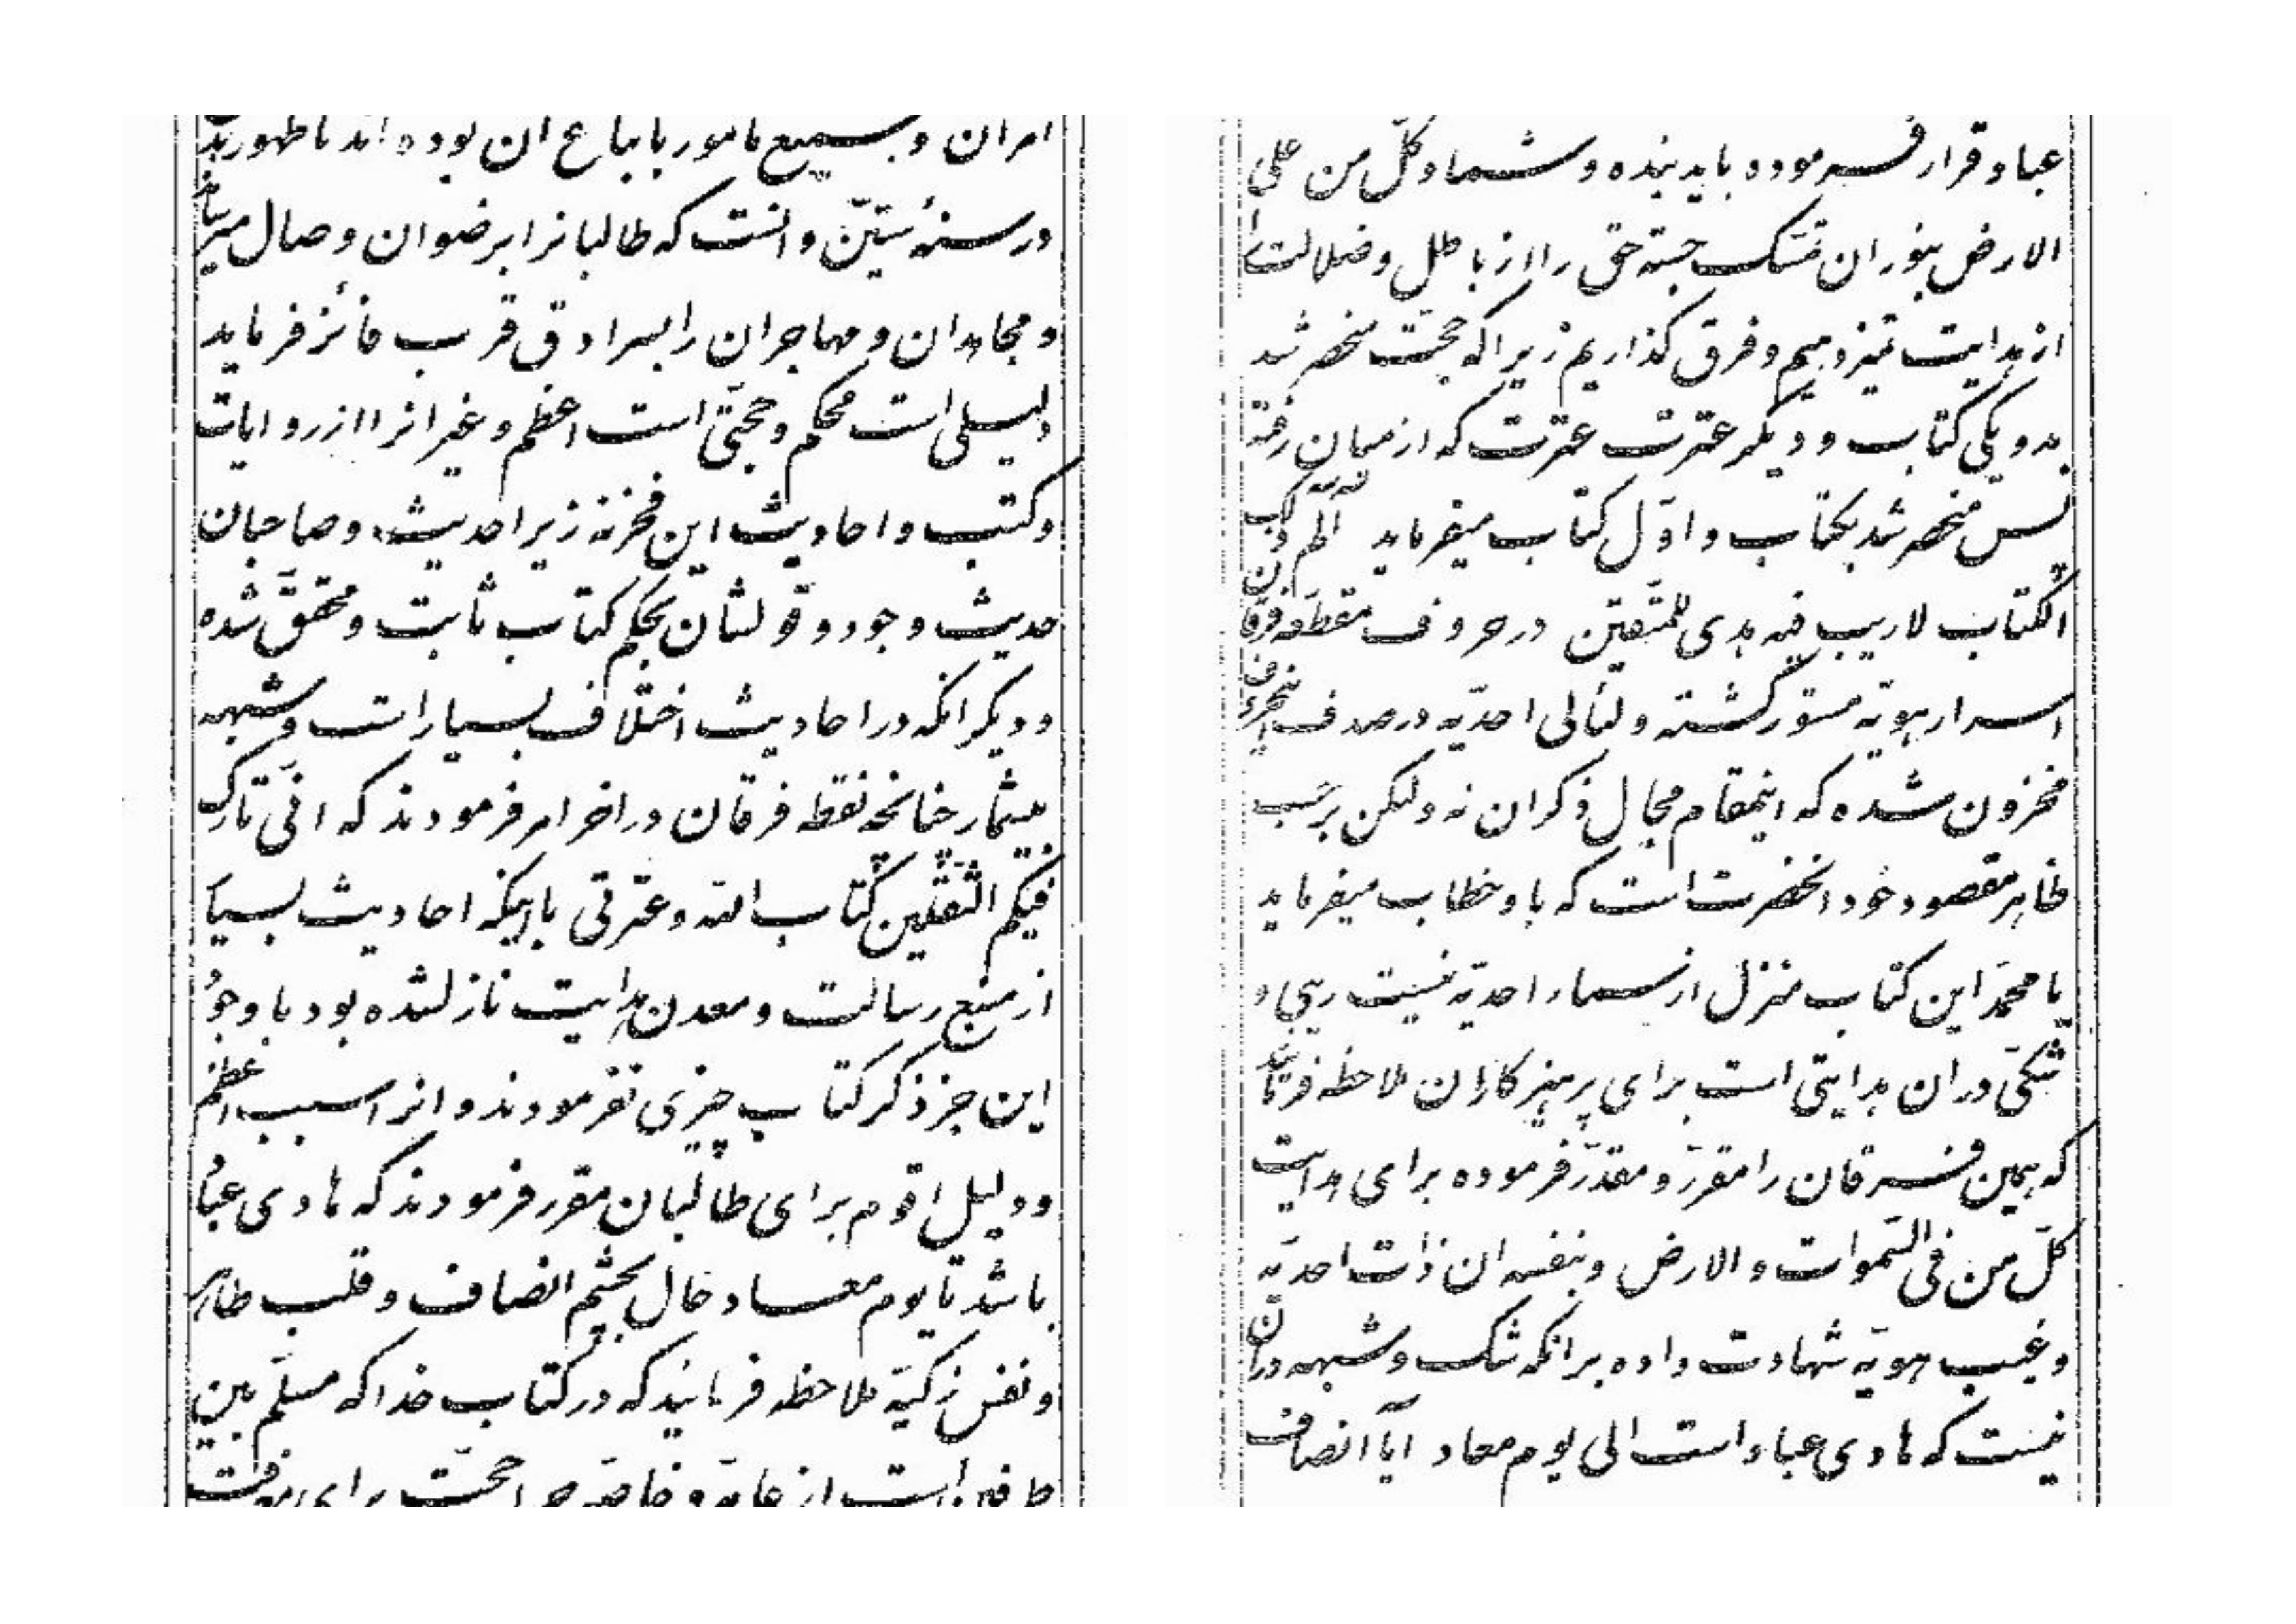 امر ان و جمیع مامور باتباع ان بوده اند تا ظهور بدیع
در سنهٔ ستّین و انست که طالبانرا برضوان وصال میرساند
و مجاهدان و مهاجران را بسرادق قرب فائز فرماید
دلیلی است محکم و حجّتی است اعظم و غیر انرا از روایات
و کتب و احادیث این فخر نه زیرا حدیث و صاحبان
حدیث وجود و قولشان بحکم کتاب ثابت و محقّق شده
و دیگر انکه در احادیث اختلاف بسیار است و شبهه
بیشمار چنانچه نقطه فرقان در اخر امر فرمودند که انّی تارک
فیکم الثّقلین کتاب الله و عترتی با اینکه احادیث بسیار
از منبع رسالت و معدن هدایت نازل شده بود با وجود
این جز ذکر کتاب چیزی نفرمودند و انرا سبب اعظم
و دلیل اقوم برای طالبان مقرر فرمودند که هادی عباد
باشد تا یوم معاد حال بچشم انصاف و قلب طاهر
و نفس زکیّه ملاحظه فرمائید که در کتاب خدا که مسلّم بین
طرفین است از عامّه و خاصّه چه را حجّت برای معرفت
عباد قرار فرموده باید بنده و شما و کلّ من علی
الارض بنور ان تمسّک جسته حق را از باطل و ضلالت را
از هدایت تمیز دهیم و فرق گذاریم زیرا که حجّت منحصر شد
بدو یکی کتاب و دیگر عترت عترت که از میان رفته
پس منحصر شد بکتاب و اوّل کتاب میفرماید الم ذلک
الکتاب لاریب فیه هدی للمتّقین در حروف مقطّعه فرقان
اسرار هویّه مستور گشته و لئالی احدیّه در صدف این حروف
مخزون شده که اینمقام مجال ذکر ان نه ولیکن بر حسب
ظاهر مقصود خود انحضرت است که باو خطاب میفرماید
یا محمّد این کتاب منزل از سماء احدیّه نیست ریبی و
شکّی در ان هدایتی است برای پرهیزکاران ملاحظه فرمائید
که همین فرقان را مقرّر و مقدّر فرموده برای هدایت
کلّ من فی السّموات و الارض و بنفسه ان ذات احدیّه
و غیب هویّه شهادت داده بر انکه شک و شبهه در ان
نیست که هادی عباد است الی یوم معاد ایا انصاف